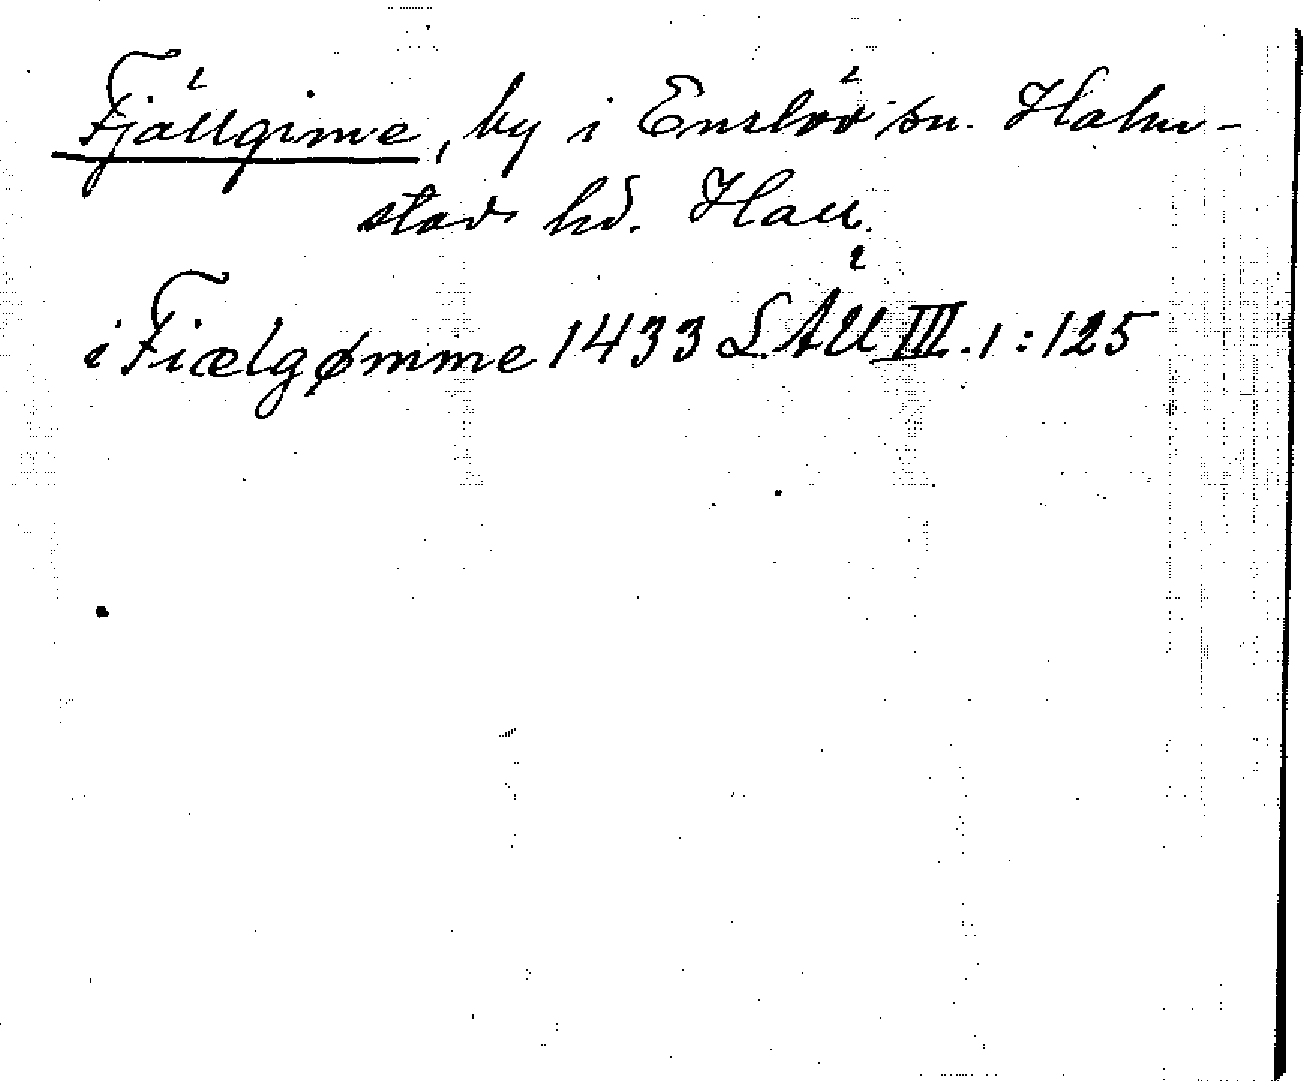 Fjällgime, by i Enslöv sn. Halm-
stads hd. Hall.
i Fiælgømme 1433 LÄU III.1:125